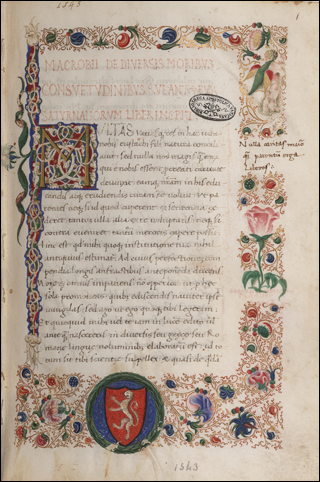 1543
1
MACROBII DE DIVERSIS MORIBUS
CONSVETVDINIBUS
SATVRNALIORVM LIBER INCIPIT
VLTAS Variasq; res in hac vita
nobis eustachi fili natura concili
avit: sed nulla nos magis q eoru
qui e nobis essent procreati caritate
devinxit: eamq; nram in his edu
candis atq; erudiendis curam ee voluit: ut pa
rentes neq; si id quod cuperent ex sententia ce
deret tantum ulla alia ex re voluptatis neq; si
contra eveniret tantum meroris capere possit
hinc est qd mihi quoq; institutione tua nihil
antiquius estimat. Ad cuius perfectione com
pendia longis anfractibus anteponeda ducens
moreq; omnis impatiens no opperior ut p hec
sola promoveas quib; ediscendis naviter ipse
invigilas: sed ago ut ego quoq; tibi legerim:
et quicquid mihi vel te iam in luce edito vel
ante q nascereris in diversis seu grece seu Ro
mane lingue voluminib; elaboratu est: id to
tum sit tibi scientie suppellex: et quasi de
Nulla caritas maior
q parentu erga
liberos
1543